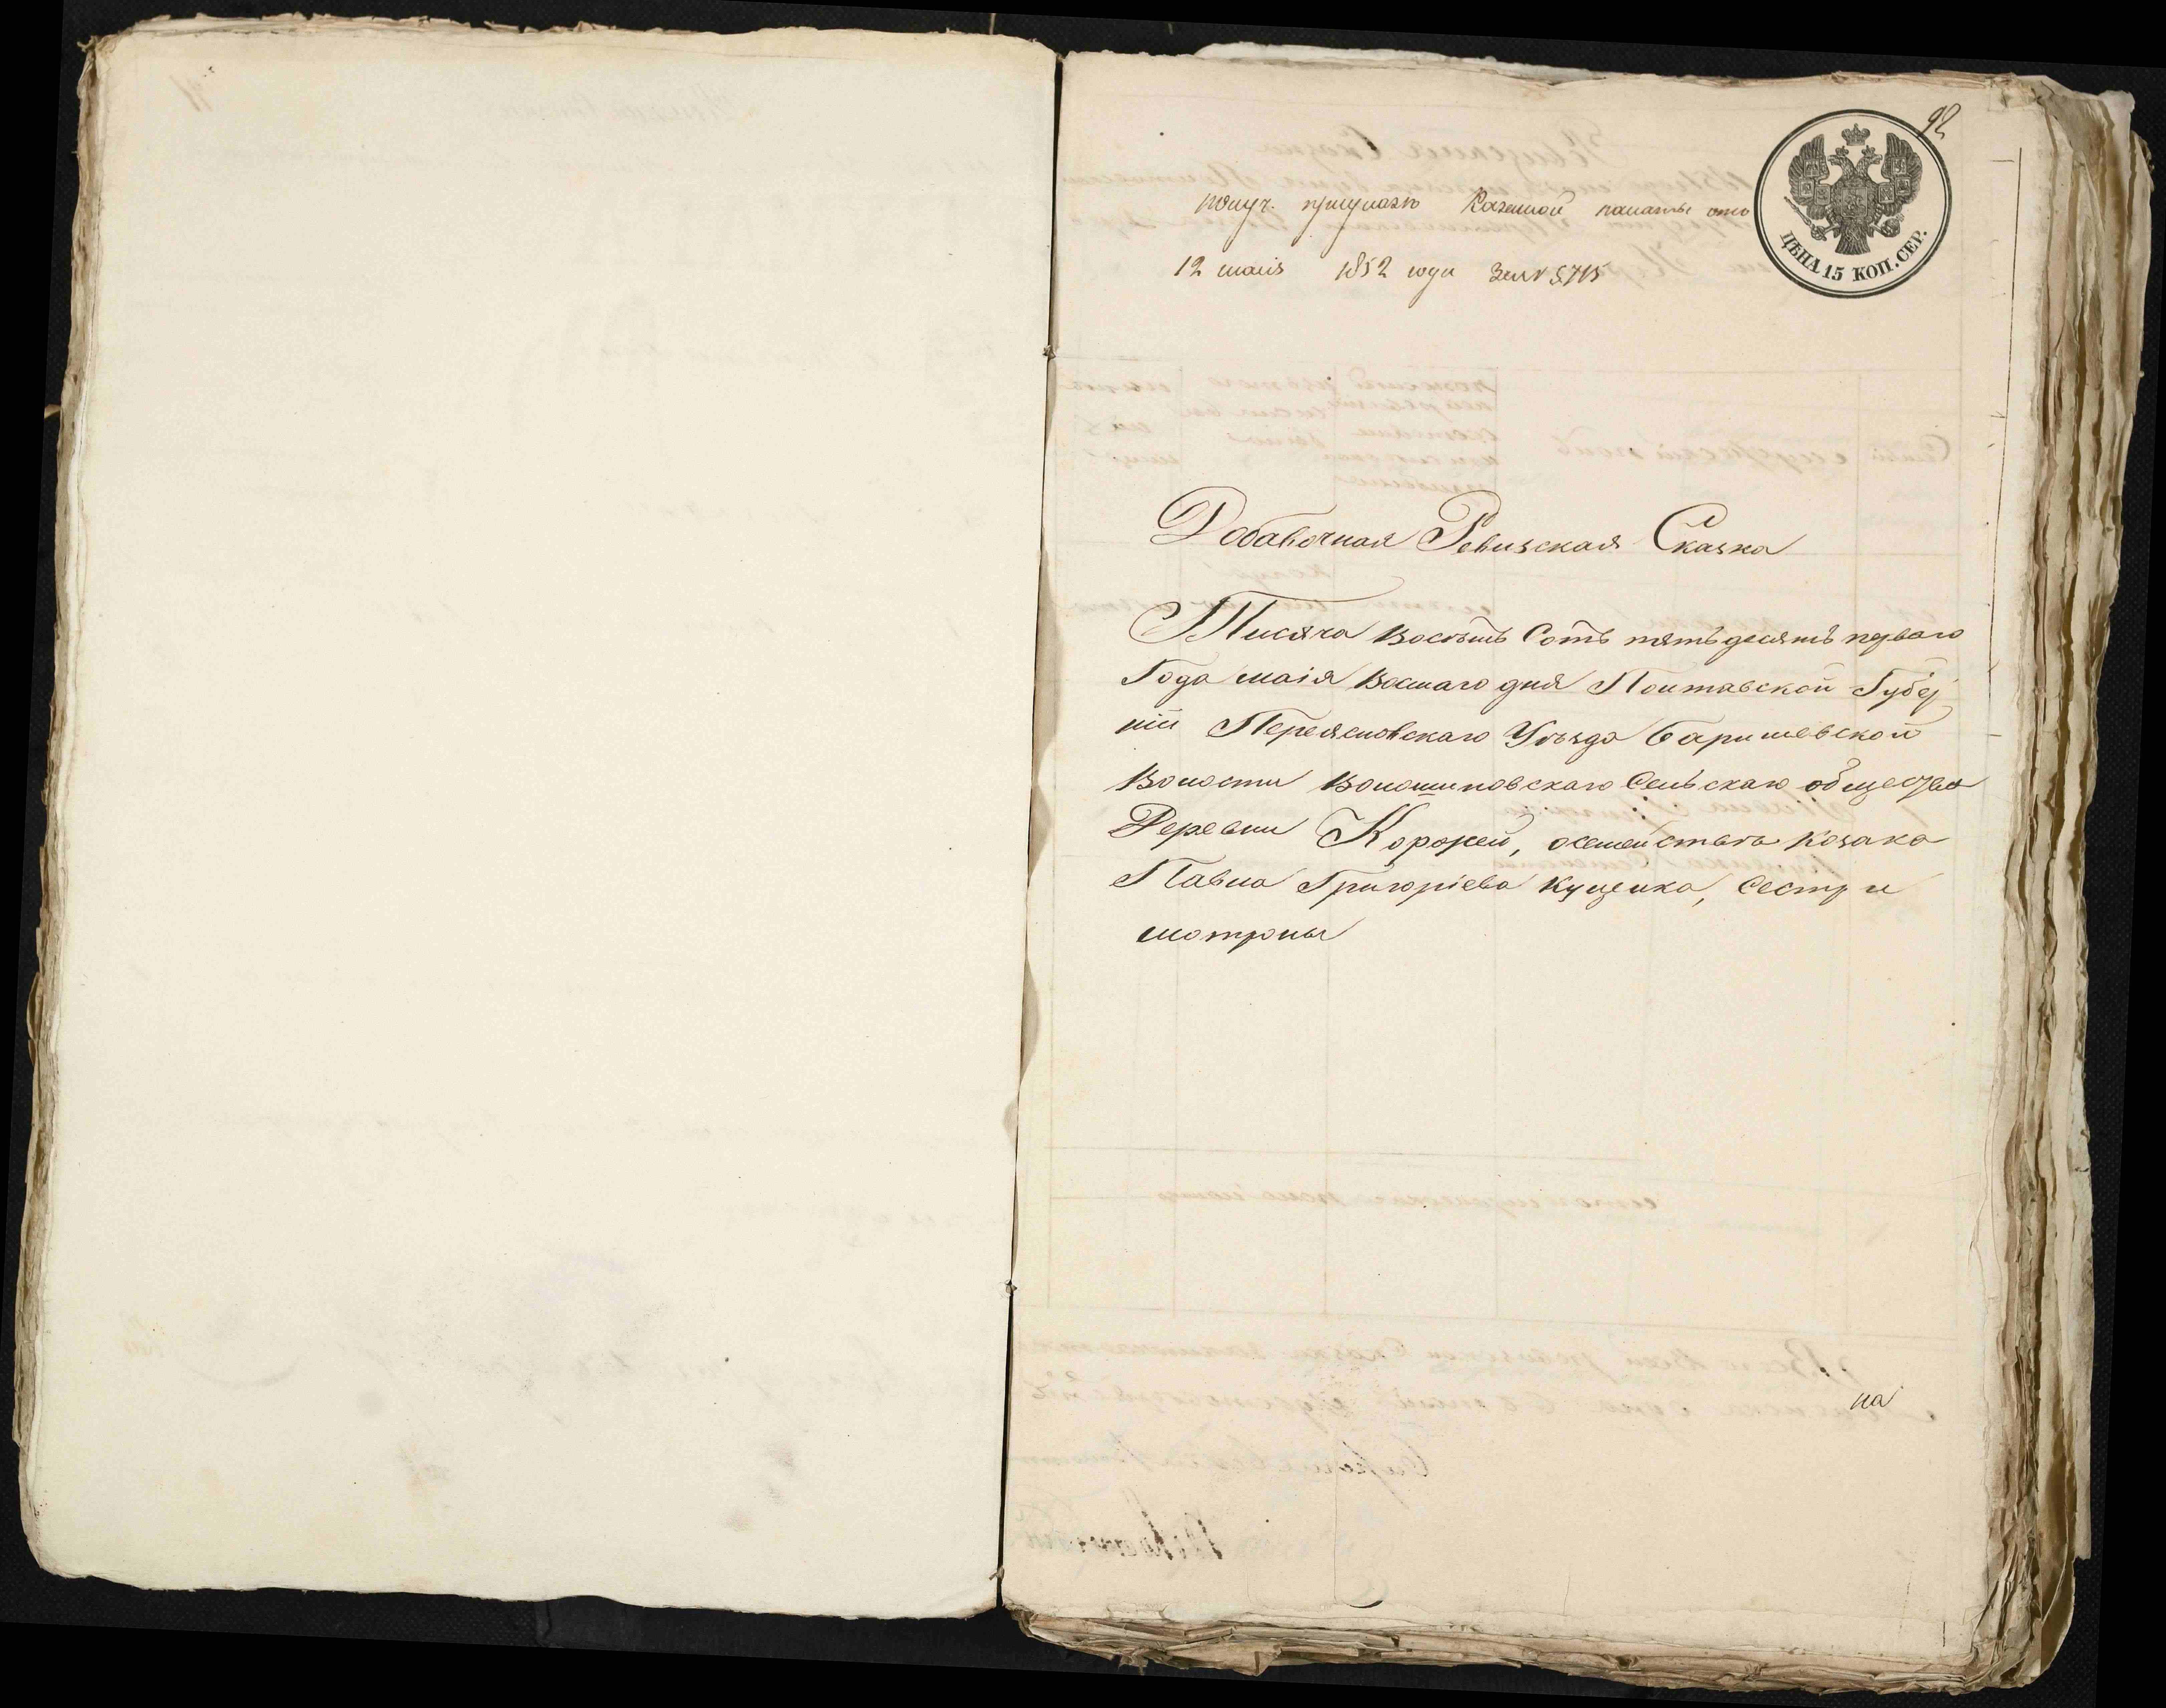 92
ЦѢНА 15 КОП. СЕР.
получ. приуказѣ Казенной палаты отъ
12 маія 1852 года за № 5715
Добавочная Ревизская Сказка
Тисяча восѣмъ Сотъ пятьдесятъ перваго
Года маія восмаго дня Полтавской Губер
ніи Переясловскаго Уѣзда Баришевской
Волости Волошиновскаго Сельскаго общества
Деревни Коржей, осемействѣ Козака
Павла Григоріева Куценка, Сестри
мотроны
на